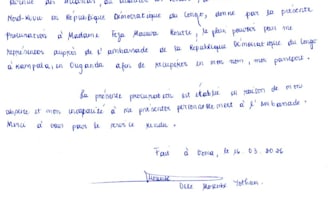 Nord-Kivu en République Démocratique du Congo, donne par la présente
Procuration à Madame Feza Rousse, le plein pouvoir pour me
représenter auprès de l'ambassade de la République Démocratique du Congo
à Kampala, en Ouganda afin de récupérer en mon nom, mon passeport.
La présente procuration est établie en raison de mon
et mon incapacité à me présenter personnellement à l'Ambassade.
Merci à vous pour le service rendu.
Fait à Goma, le 16.03.2026
Dlle